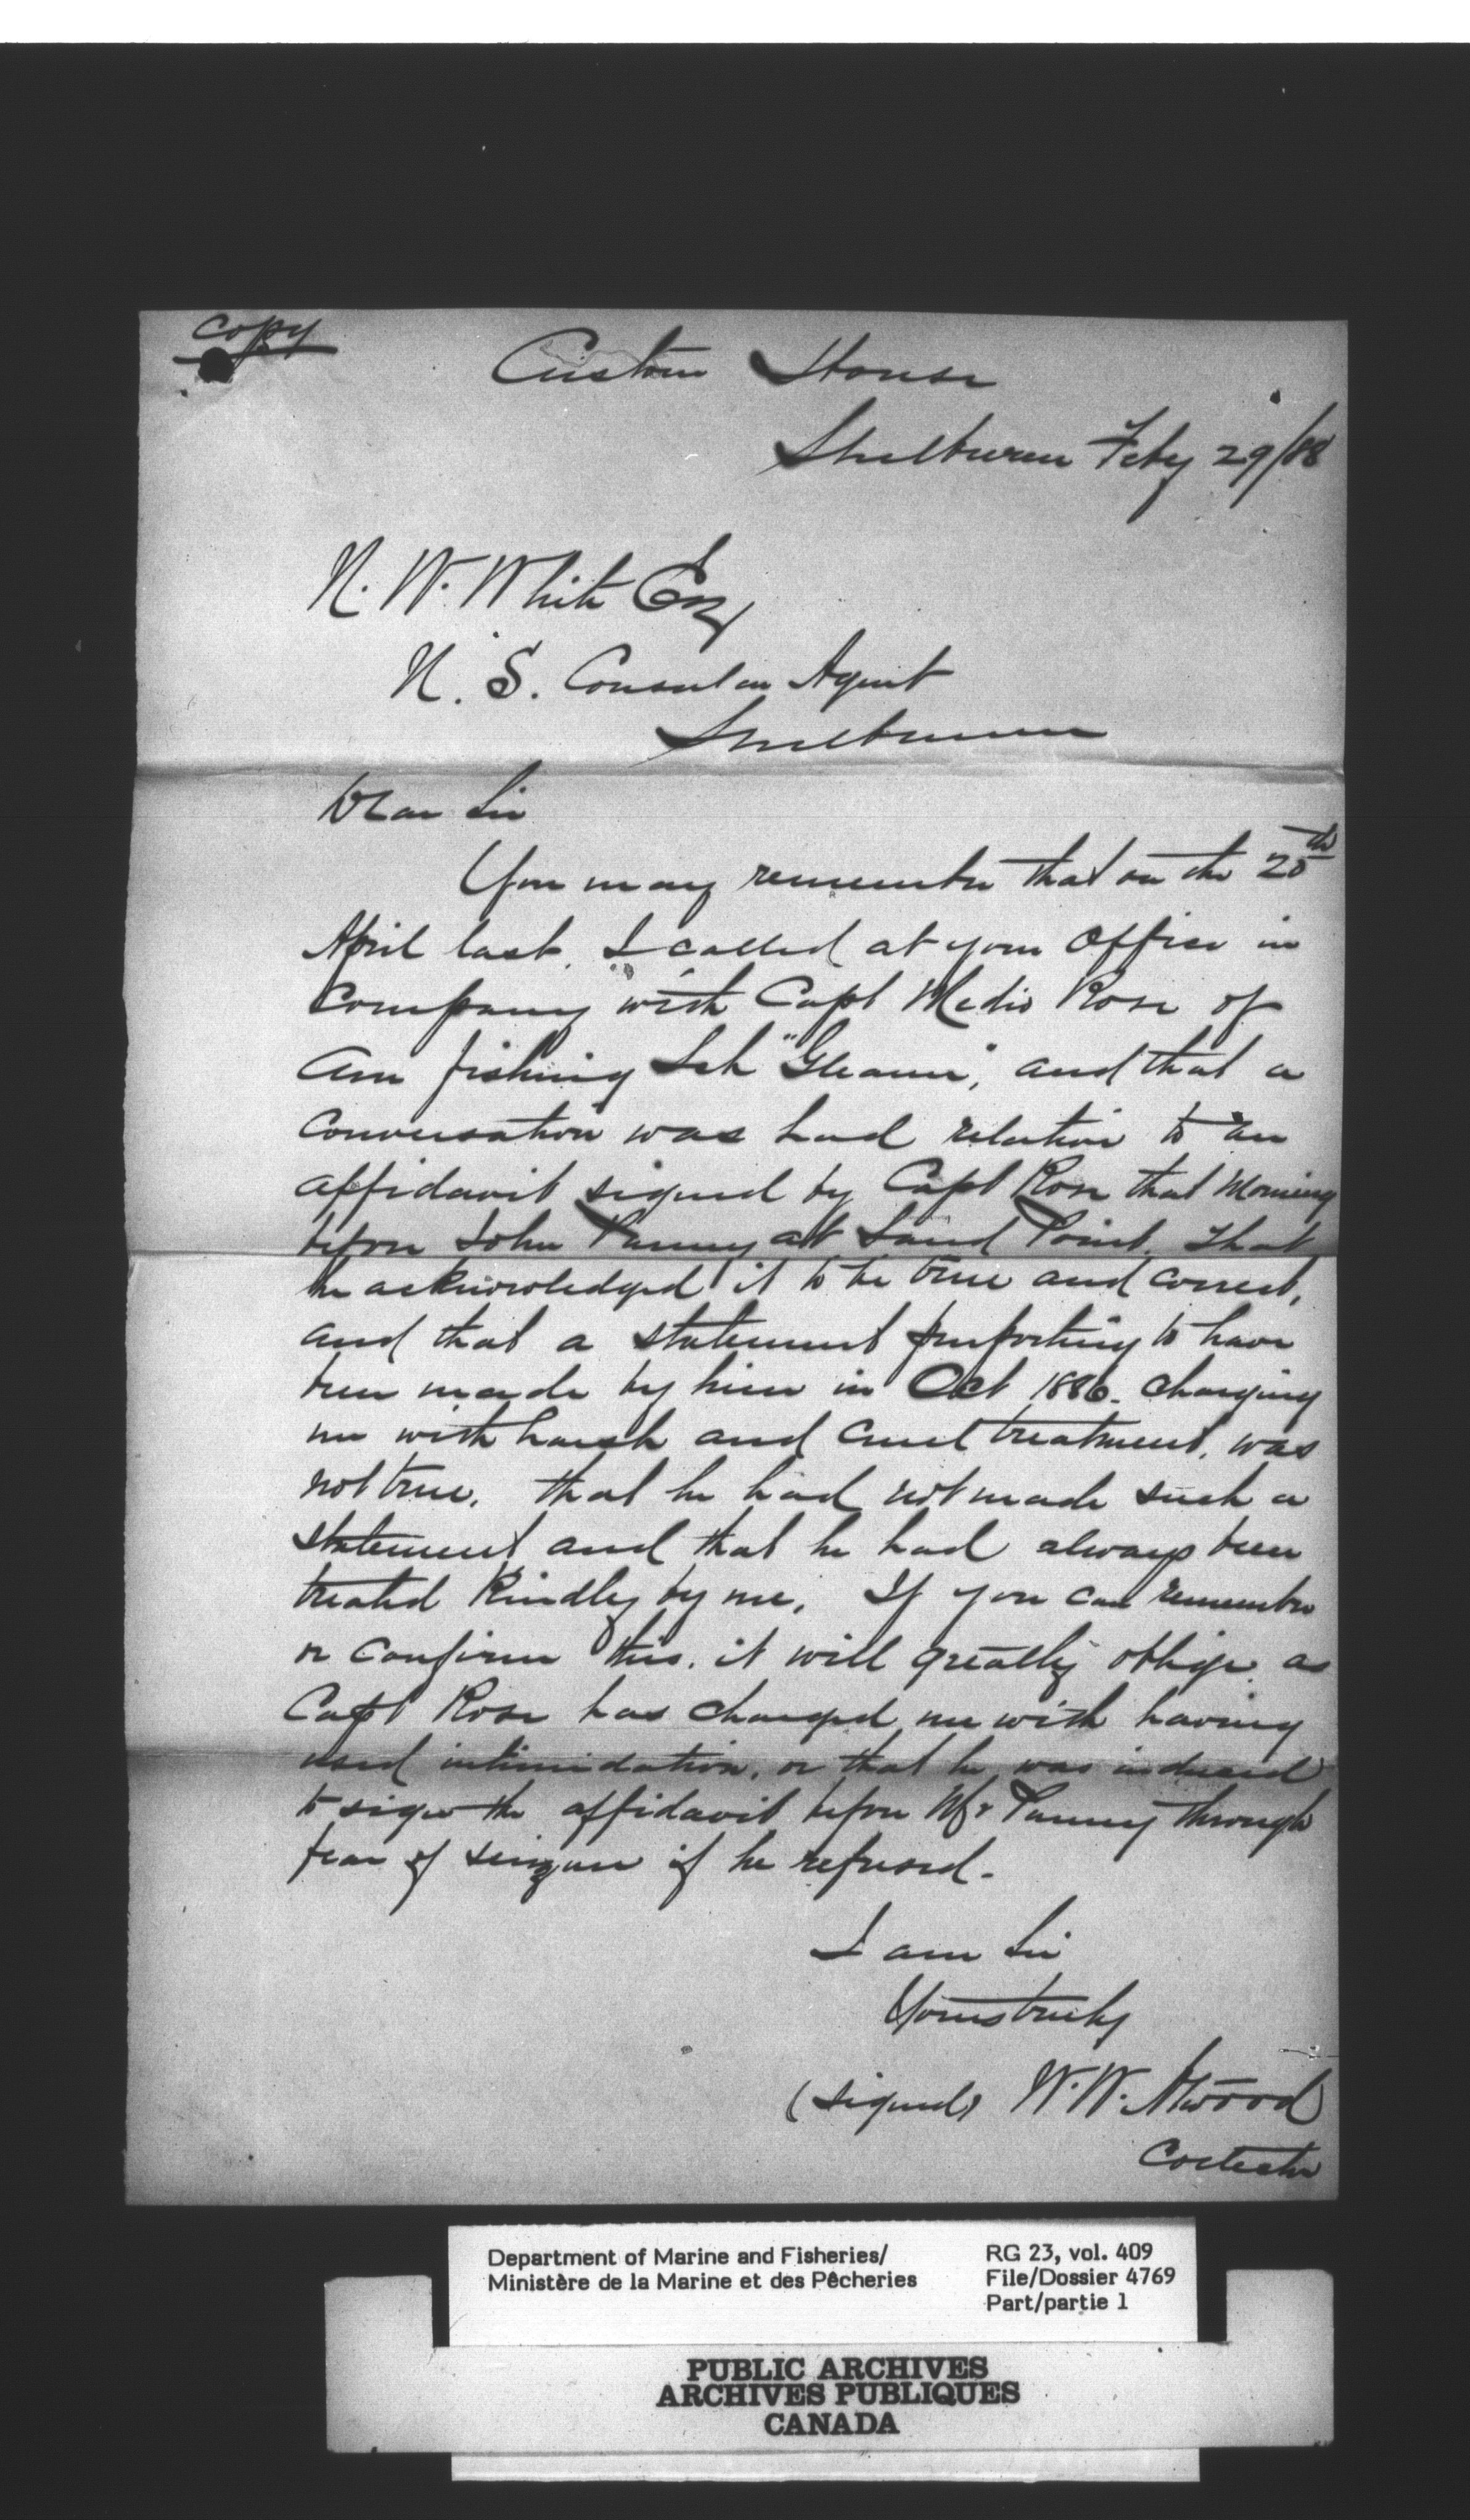 Copy
Custom House
Shelburne Feby 29/88
N. W. White Esq
U. S. Consular Agent
Shelburne
Dear Sir
You may remember that on the 20th
April last, I called at your Office in
Company with Capt Medio Rose of
Am fishing Sch "Gleaner", and that a
Conversation was had relative to an
affidavit signed by Capt Rose that Morning
before John Purney at Sand Point. That
he acknowledged it to be true and correct,
and that a statement purporting to have
been made by him in Oct 1886. charging
me with harsh and cruel treatment, was
not true. that he had not made such a
statement and that he had always been
treated Kindly by me. If you can remember
or confirm this. it will greatly oblige as
Capt Rose has charged me with having
used intimidation, or that he was induced
to sign the affidavit before Mr Purney through
fear of seizure if he refused.
I am Sir
Yours truly
(signed) W. W. Atwood
Collector
Department of Marine and Fisheries/
Ministère de la Marine et des Pêcheries
RG 23, vol. 409
File/Dossier 4769
Part/partie 1
PUBLIC ARCHIVES
ARCHIVES PUBLIQUES
CANADA